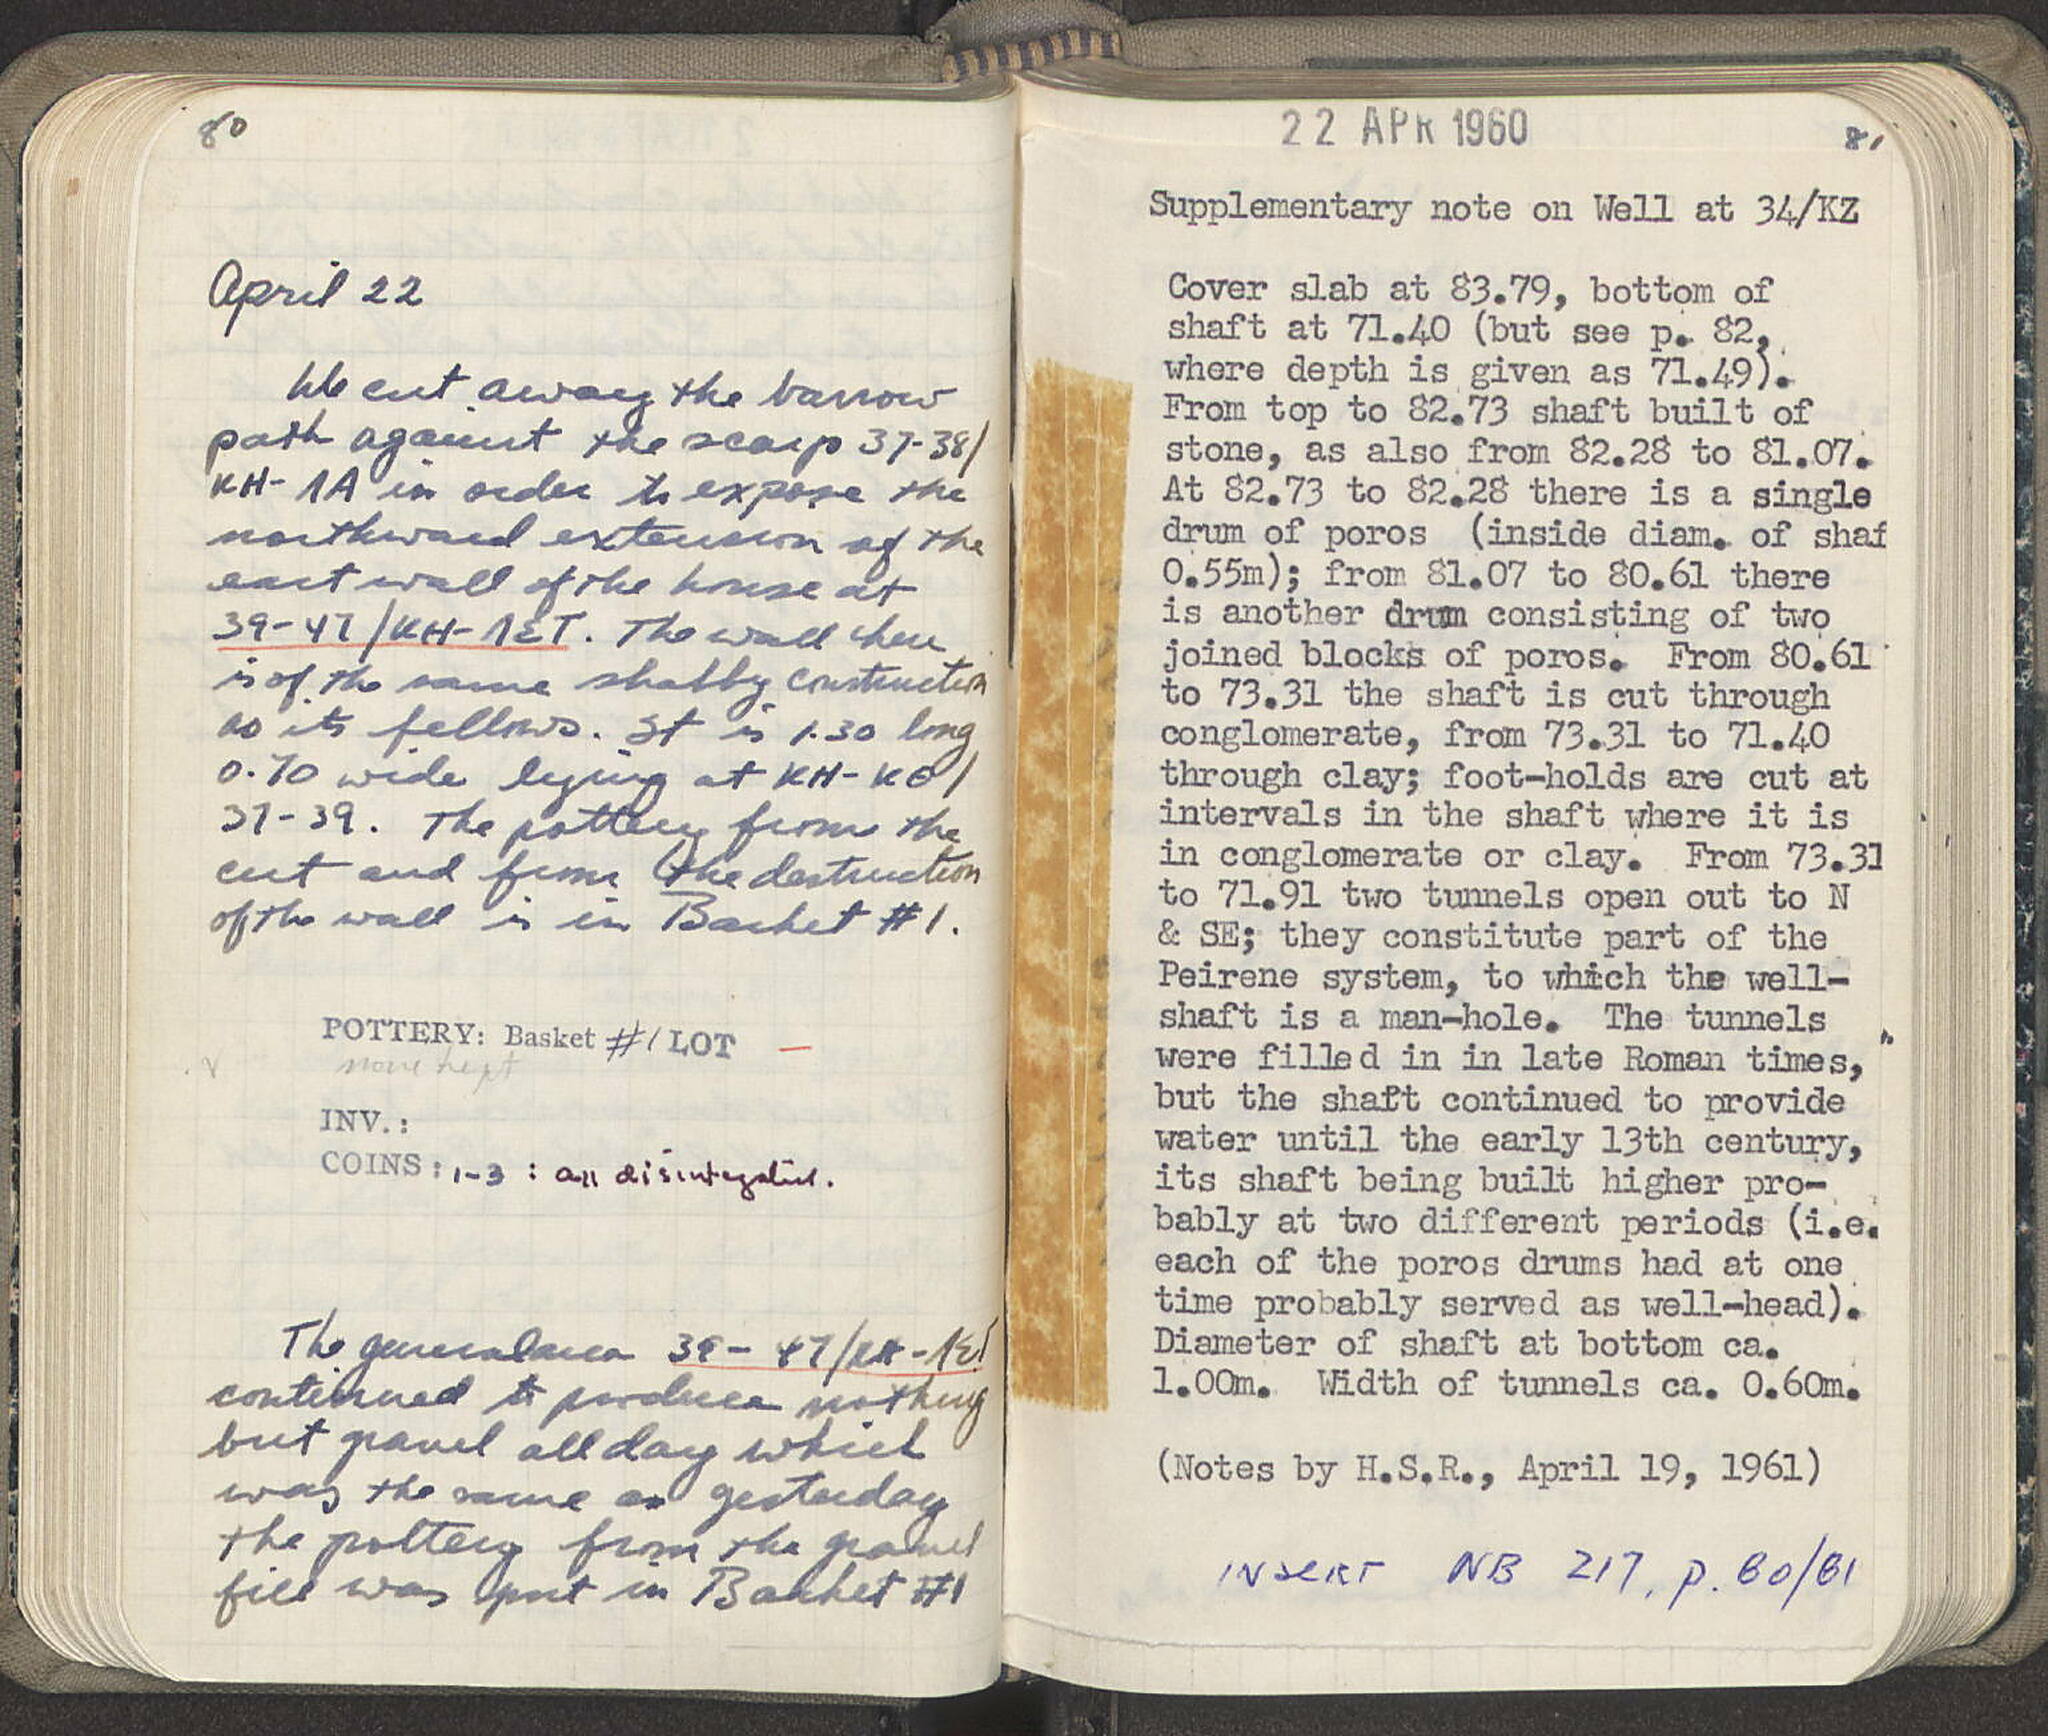 80
April 22
We cut away the barrow
path against the scarp 37-38/
KH-ΛA in order to expose the
northward extension of the
east wall of the house at
39-47/KH-ΛΣT. The wall here
is of the same shabby construction
as its fellows. It is 1.30 long
0.70 wide lying at KH-KΘ/
37-39. The pottery from the
cut and from the destruction
of the wall is in Basket #1.
POTTERY: Basket #1 LOT —
none kept
INV.:
COINS: 1-3 : all disintegrated.
The general area 39-47/KH-ΛΣT
continued to produce nothing
but gravel all day which
was the same as yesterday
the pottery from the gravel
fill was put in Basket #1
22 APR 1960
81
Supplementary note on Well at 34/KZ
Cover slab at 83.79, bottom of
shaft at 71.40 (but see p. 82,
where depth is given as 71.49).
From top to 82.73 shaft built of
stone, as also from 82.28 to 81.07.
At 82.73 to 82.28 there is a single
drum of poros (inside diam. of shaf
0.55m); from 81.07 to 80.61 there
is another drum consisting of two
joined blocks of poros. From 80.61
to 73.31 the shaft is cut through
conglomerate, from 73.31 to 71.40
through clay; foot-holds are cut at
intervals in the shaft where it is
in conglomerate or clay. From 73.31
to 71.91 two tunnels open out to N
& SE; they constitute part of the
Peirene system, to which the well-
shaft is a man-hole. The tunnels
were filled in in late Roman times,
but the shaft continued to provide
water until the early 13th century,
its shaft being built higher pro-
bably at two different periods (i.e.
each of the poros drums had at one
time probably served as well-head).
Diameter of shaft at bottom ca.
1.00m. Width of tunnels ca. 0.60m.
(Notes by H.S.R., April 19, 1961)
INSERT NB 217, p. 80/81